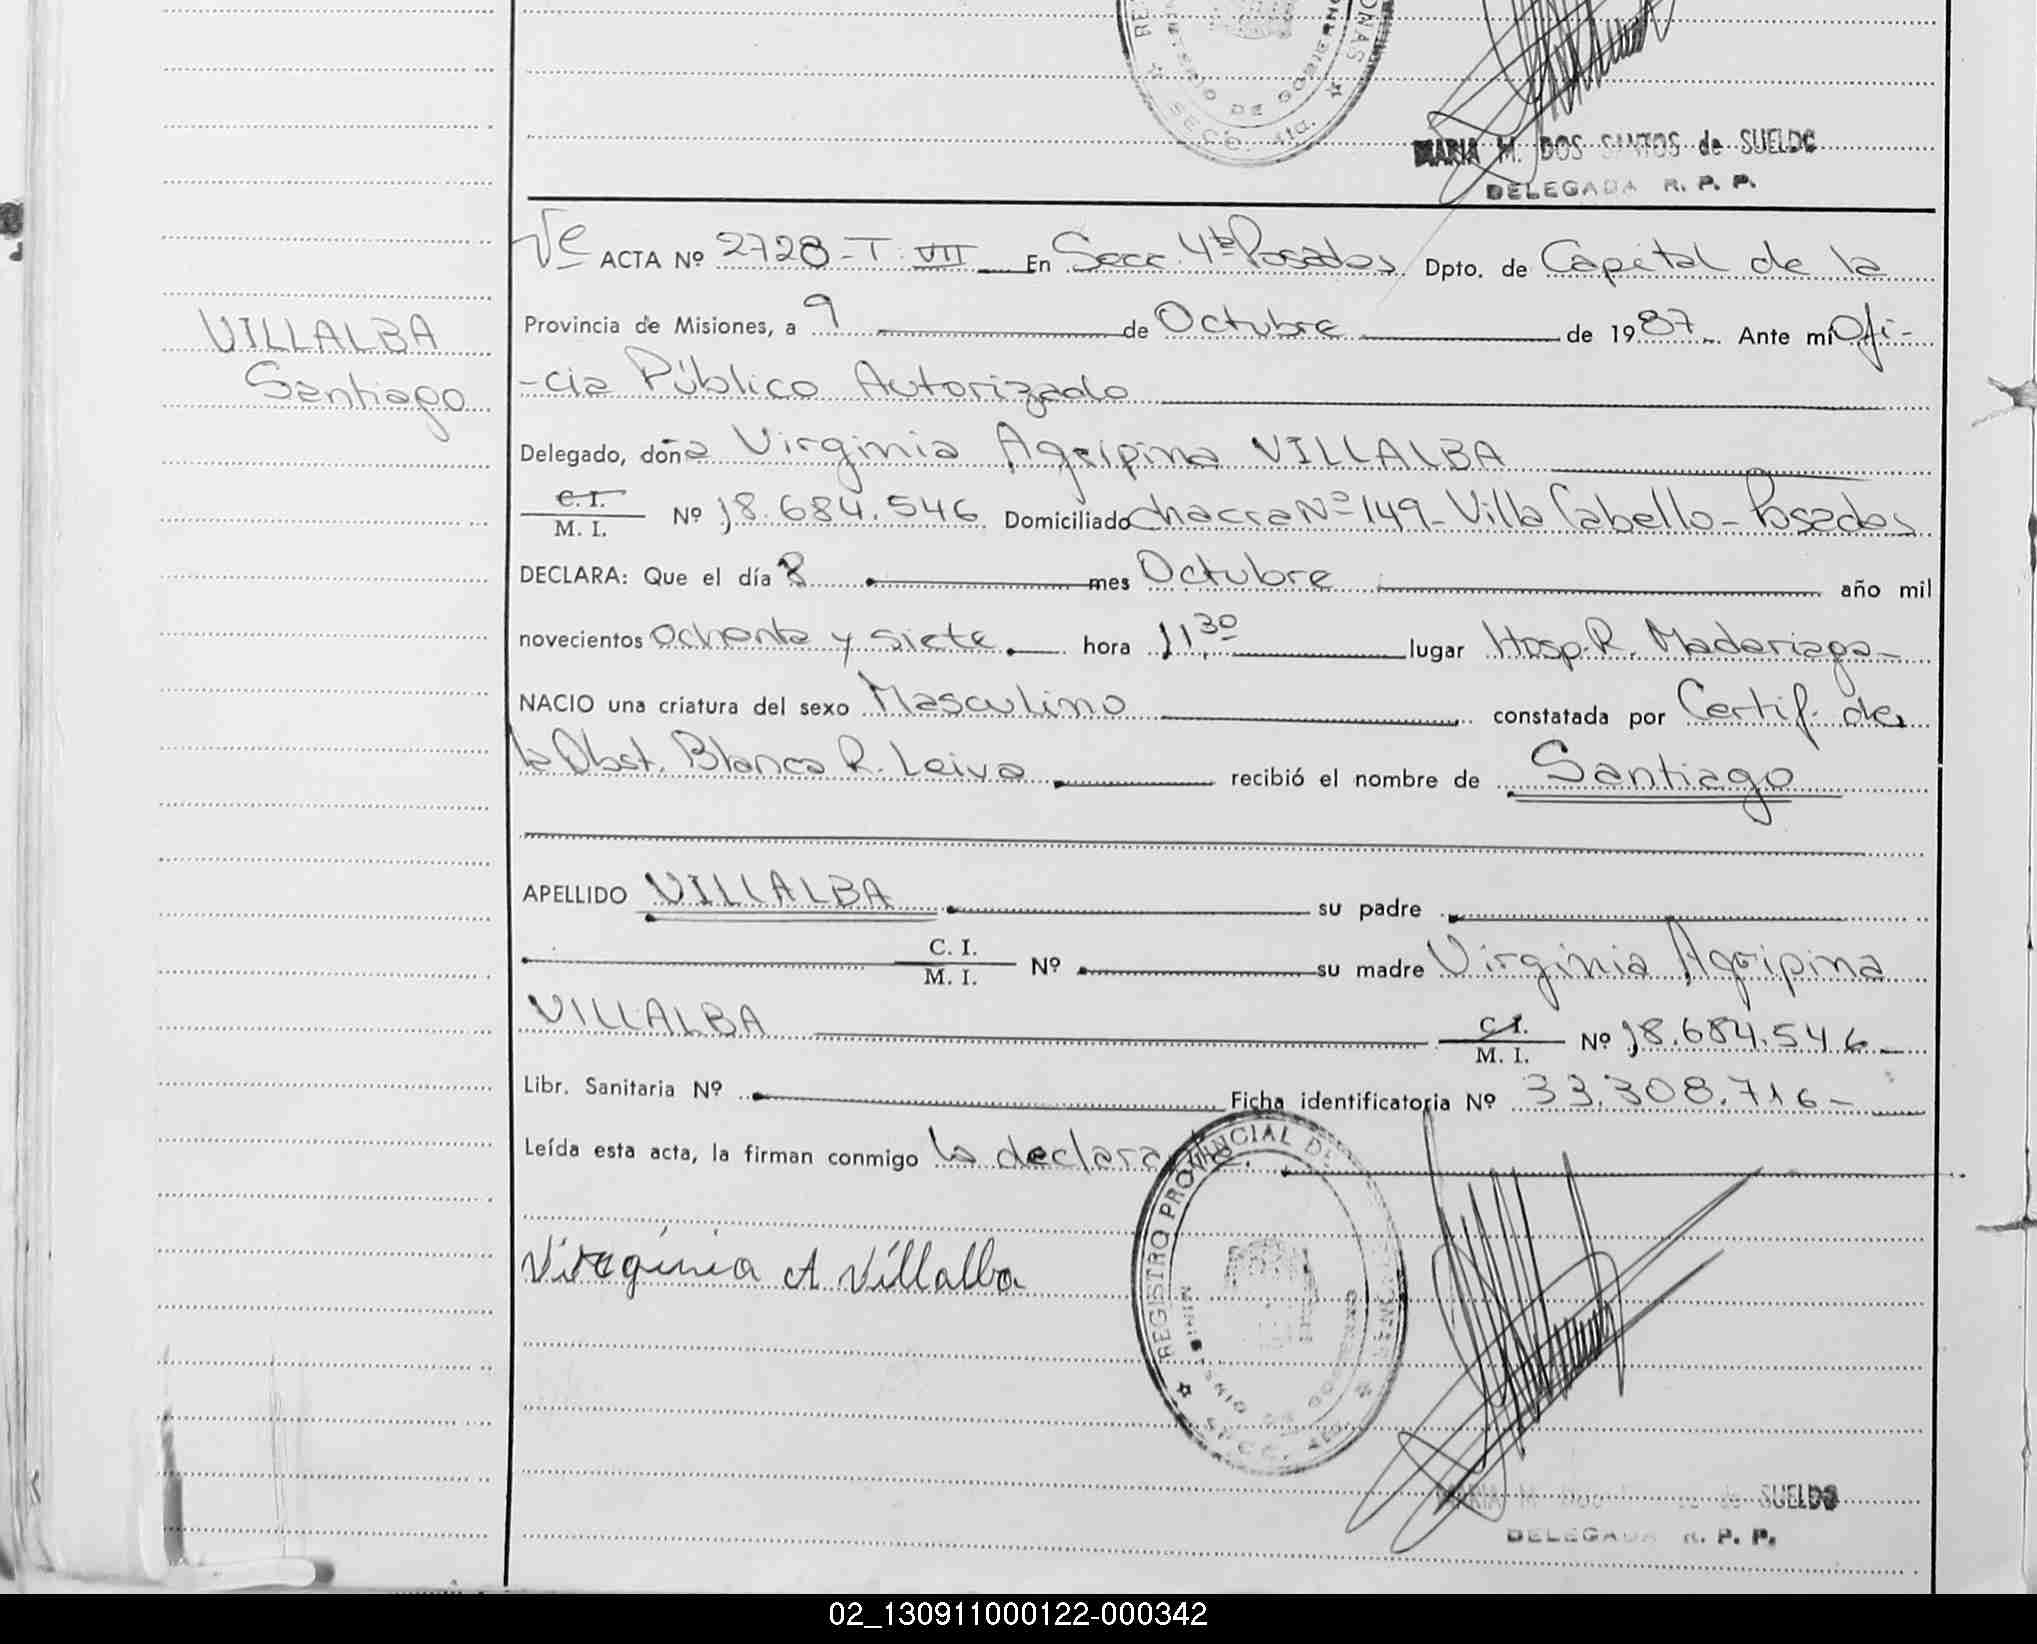 MINISTERIO DE GOBIERNO
SECC. 4ta.
MARIA M. DOS SANTOS de SUELDO
DELEGADA R. P. P.
ACTA Nº 2728 - T. VII En Secc. 4ta Posadas Dpto. de Capital de la
VILLALBA
Santiago
Provincia de Misiones, a 9 de Octubre de 1987 Ante mi Ofi-
-cia Público Autorizado
Delegado, doña Virginia Agripina VILLALBA
C. I.
M. I. Nº 18.684.546 Domiciliado chacra Nº 149 - Villa Cabello - Posadas
DECLARA: Que el día 8 mes Octubre año mil
novecientos ochenta y siete hora 11,30 lugar Hosp. R. Madariaga -
NACIO una criatura del sexo Masculino constatada por Certif. de
la Obst. Blanca R. Leiva recibió el nombre de Santiago
APELLIDO VILLALBA su padre
C. I.
M. I. Nº su madre Virginia Agripina
VILLALBA C. I.
M. I. Nº 18.684.546 -
Libr. Sanitaria Nº Ficha identificatoria Nº 33.308.716 -
Leída esta acta, la firman conmigo la declarante.
Virginia A Villalba
REGISTRO PROVINCIAL DE
SECC. 4ta.
SUELDO
DELEGADA R. P. P.
02_130911000122-000342